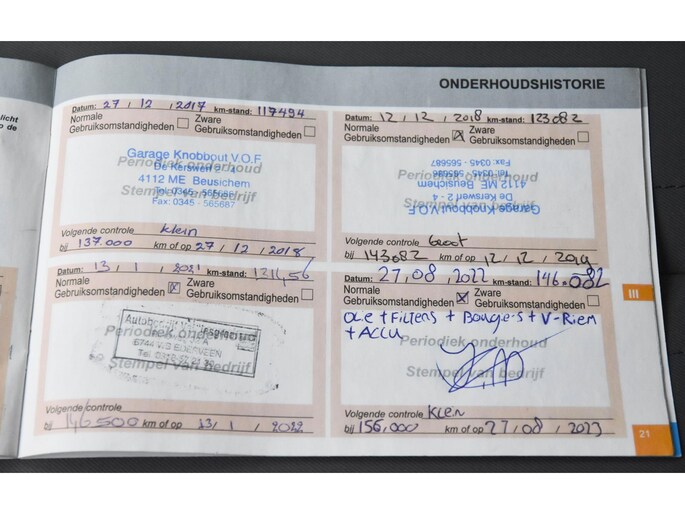 licht
o de
ONDERHOUDSHISTORIE
Datum: 27 / 12 / 2017 km-stand: 117494
Normale
Gebruiksomstandigheden
Zware
Gebruiksomstandigheden
Garage Knobbout V.O.F.
Periodiek onderhoud
De Kersweri 2 - 4
4112 ME Beusichem
Stempel van bedrijf
Tel: 0345 - 565086
Fax: 0345 - 565687
Volgende controle klein
bij 137.000 km of op 27 / 12 / 2018
Datum: 12 / 12 / 2018 km-stand: 123082
Normale
Gebruiksomstandigheden
Zware
Gebruiksomstandigheden
Fax: 0345 - 565687
Periodiek onderhoud
4112 ME Beusichem
Stempel van bedrijf
De Kersweri 2 - 4
Garage Knobbout V.O.F.
Volgende controle Groot
bij 143082 km of op 12 / 12 / 2019
Datum: 13 / 1 / 2021 km-stand:
Normale
Gebruiksomstandigheden
Zware
Gebruiksomstandigheden
Periodiek onderhoud
Stempel van bedrijf
Volgende controle
bij 146500 km of op 13 / 1 / 2022
Datum: 27, 08 / 2022 km-stand: 146.082
Normale
Gebruiksomstandigheden
Zware
Gebruiksomstandigheden
Olie + Filters + Bougies + V-Riem
+ ACCU
Periodiek onderhoud
Stempel van bedrijf
Volgende controle Klein
bij 156,000 km of op 27 / 08 / 2023
III
21